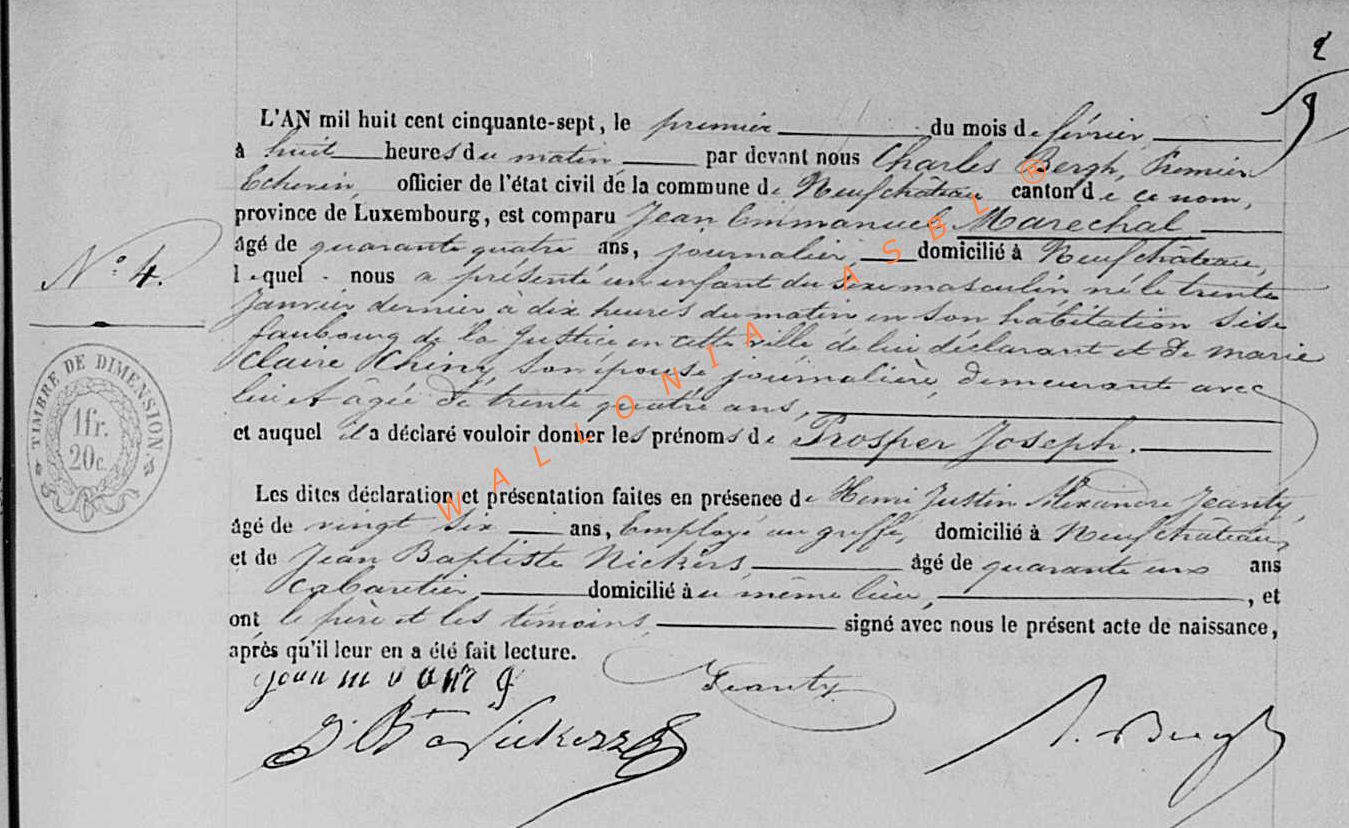 2
L'AN mil huit cent cinquante-sept, le premier du mois de février
à huit heures du matin par devant nous Charles Bergh, Premier
Echevin, officier de l'état civil de la commune de Neufchateau canton de ce nom,
province de Luxembourg, est comparu Jean Emmanuel Marechal
âgé de quarante quatre ans, journalier, domicilié à Neufchâteau,
N° 4.
lequel nous a présenté un enfant du sexe masculin né le trente
Janvier dernier à dix heures du matin en son habitation sise
faubourg de la Justice en cette ville de lui déclarant et de marie
Claire Chiny, son épouse journalière, demeurante avec
lui et âgée de trente quatre ans,
et auquel il a déclaré vouloir donner les prénoms de Prosper Joseph.
TIMBRE DE DIMENSION.
1fr.
20c.
Les dites déclaration et présentation faites en présence de Henri Justin Alexandre Jeanty,
âgé de vingt six ans, Employé au greffe, domicilié à Neufchâteau,
et de Jean Baptiste Nickers âgé de quarante un ans
Cabaretier, domicilié au même lieu, , et
ont le père et les témoins, signé avec nous le présent acte de naissance,
après qu'il leur en a été fait lecture.
Jeanty
Bergh
WALLONIA ASBL ®